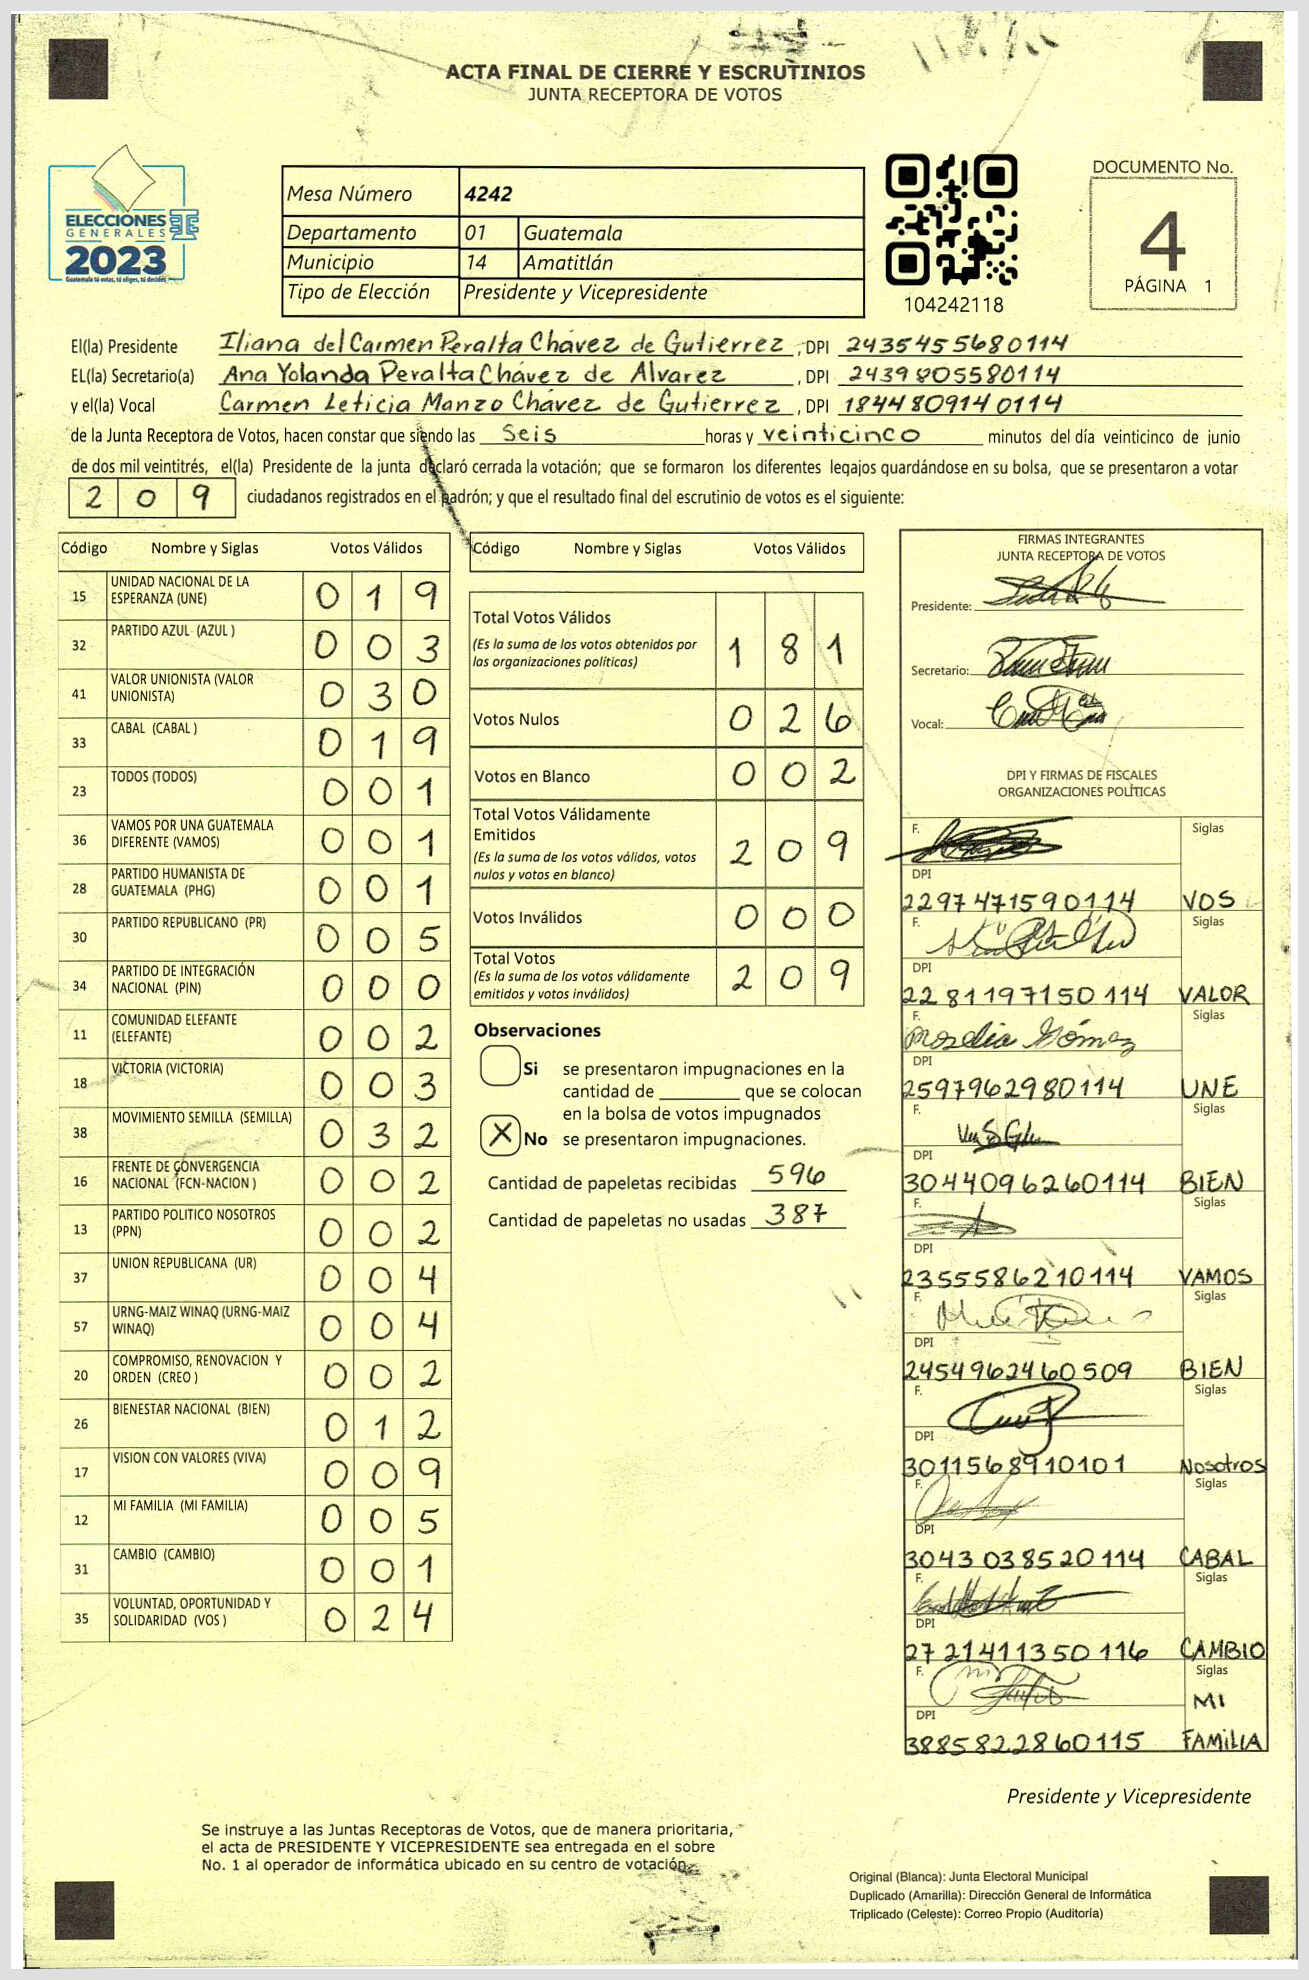 ACTA FINAL DE CIERRE Y ESCRUTINIOS
JUNTA RECEPTORA DE VOTOS
ELECCIONES
GENERALES
2023
Guatemala tú votas, tú eliges, tú decides
Mesa Número 4242
Departamento 01 Guatemala
Municipio 14 Amatitlán
Tipo de Elección Presidente y Vicepresidente
104242118
DOCUMENTO No.
4
PÁGINA 1
El(la) Presidente Iliana del Carmen Peralta Chávez de Gutierrez , DPI 2435455680114
EL(la) Secretario(a) Ana Yolanda Peralta Chávez de Alvarez , DPI 2439805580114
y el(la) Vocal Carmen Leticia Manzo Chávez de Gutierrez , DPI 1844809140114
de la Junta Receptora de Votos, hacen constar que siendo las seis horas y veinticinco minutos del día veinticinco de junio
de dos mil veintitrés, el(la) Presidente de la junta declaró cerrada la votación; que se formaron los diferentes legajos guardándose en su bolsa, que se presentaron a votar
2 0 9 ciudadanos registrados en el padrón; y que el resultado final del escrutinio de votos es el siguiente:
Código Nombre y Siglas Votos Válidos
15 UNIDAD NACIONAL DE LA
ESPERANZA (UNE) 0 1 9
32 PARTIDO AZUL (AZUL ) 0 0 3
41 VALOR UNIONISTA (VALOR
UNIONISTA) 0 3 0
33 CABAL (CABAL ) 0 1 9
23 TODOS (TODOS) 0 0 1
36 VAMOS POR UNA GUATEMALA
DIFERENTE (VAMOS) 0 0 1
28 PARTIDO HUMANISTA DE
GUATEMALA (PHG) 0 0 1
30 PARTIDO REPUBLICANO (PR) 0 0 5
34 PARTIDO DE INTEGRACIÓN
NACIONAL (PIN) 0 0 0
11 COMUNIDAD ELEFANTE
(ELEFANTE) 0 0 2
18 VICTORIA (VICTORIA) 0 0 3
38 MOVIMIENTO SEMILLA (SEMILLA) 0 3 2
16 FRENTE DE CONVERGENCIA
NACIONAL (FCN-NACION ) 0 0 2
13 PARTIDO POLITICO NOSOTROS
(PPN) 0 0 2
37 UNION REPUBLICANA (UR) 0 0 4
57 URNG-MAIZ WINAQ (URNG-MAIZ
WINAQ) 0 0 4
20 COMPROMISO, RENOVACION Y
ORDEN (CREO ) 0 0 2
26 BIENESTAR NACIONAL (BIEN) 0 1 2
17 VISION CON VALORES (VIVA) 0 0 9
12 MI FAMILIA (MI FAMILIA) 0 0 5
31 CAMBIO (CAMBIO) 0 0 1
35 VOLUNTAD, OPORTUNIDAD Y
SOLIDARIDAD (VOS ) 0 2 4
Código Nombre y Siglas Votos Válidos
Total Votos Válidos
(Es la suma de los votos obtenidos por
las organizaciones políticas) 1 8 1
Votos Nulos 0 2 6
Votos en Blanco 0 0 2
Total Votos Válidamente
Emitidos
(Es la suma de los votos válidos, votos
nulos y votos en blanco) 2 0 9
Votos Inválidos 0 0 0
Total Votos
(Es la suma de los votos válidamente
emitidos y votos inválidos) 2 0 9
Observaciones
Si se presentaron impugnaciones en la
cantidad de ________ que se colocan
en la bolsa de votos impugnados
X No se presentaron impugnaciones.
Cantidad de papeletas recibidas 596
Cantidad de papeletas no usadas 387
FIRMAS INTEGRANTES
JUNTA RECEPTORA DE VOTOS
Presidente:
Secretario:
Vocal:
DPI Y FIRMAS DE FISCALES
ORGANIZACIONES POLÍTICAS
F. Siglas
DPI
2297471590114 VOS
F. Siglas
DPI
2281197150114 VALOR
F. Rosdia Gómez Siglas
DPI
2597962980114 UNE
F. Siglas
DPI
3044096260114 BIEN
F. Siglas
DPI
2355586210114 VAMOS
F. Siglas
DPI
2454962460509 BIEN
F. Siglas
DPI
3011568910101 Nosotros
F. Siglas
DPI
3043038520114 CABAL
F. Siglas
DPI
2721411350116 CAMBIO
F. Siglas
DPI MI
3885822860115 FAMILIA
Presidente y Vicepresidente
Se instruye a las Juntas Receptoras de Votos, que de manera prioritaria,
el acta de PRESIDENTE Y VICEPRESIDENTE sea entregada en el sobre
No. 1 al operador de informática ubicado en su centro de votación.
Original (Blanca): Junta Electoral Municipal
Duplicado (Amarilla): Dirección General de Informática
Triplicado (Celeste): Correo Propio (Auditoría)